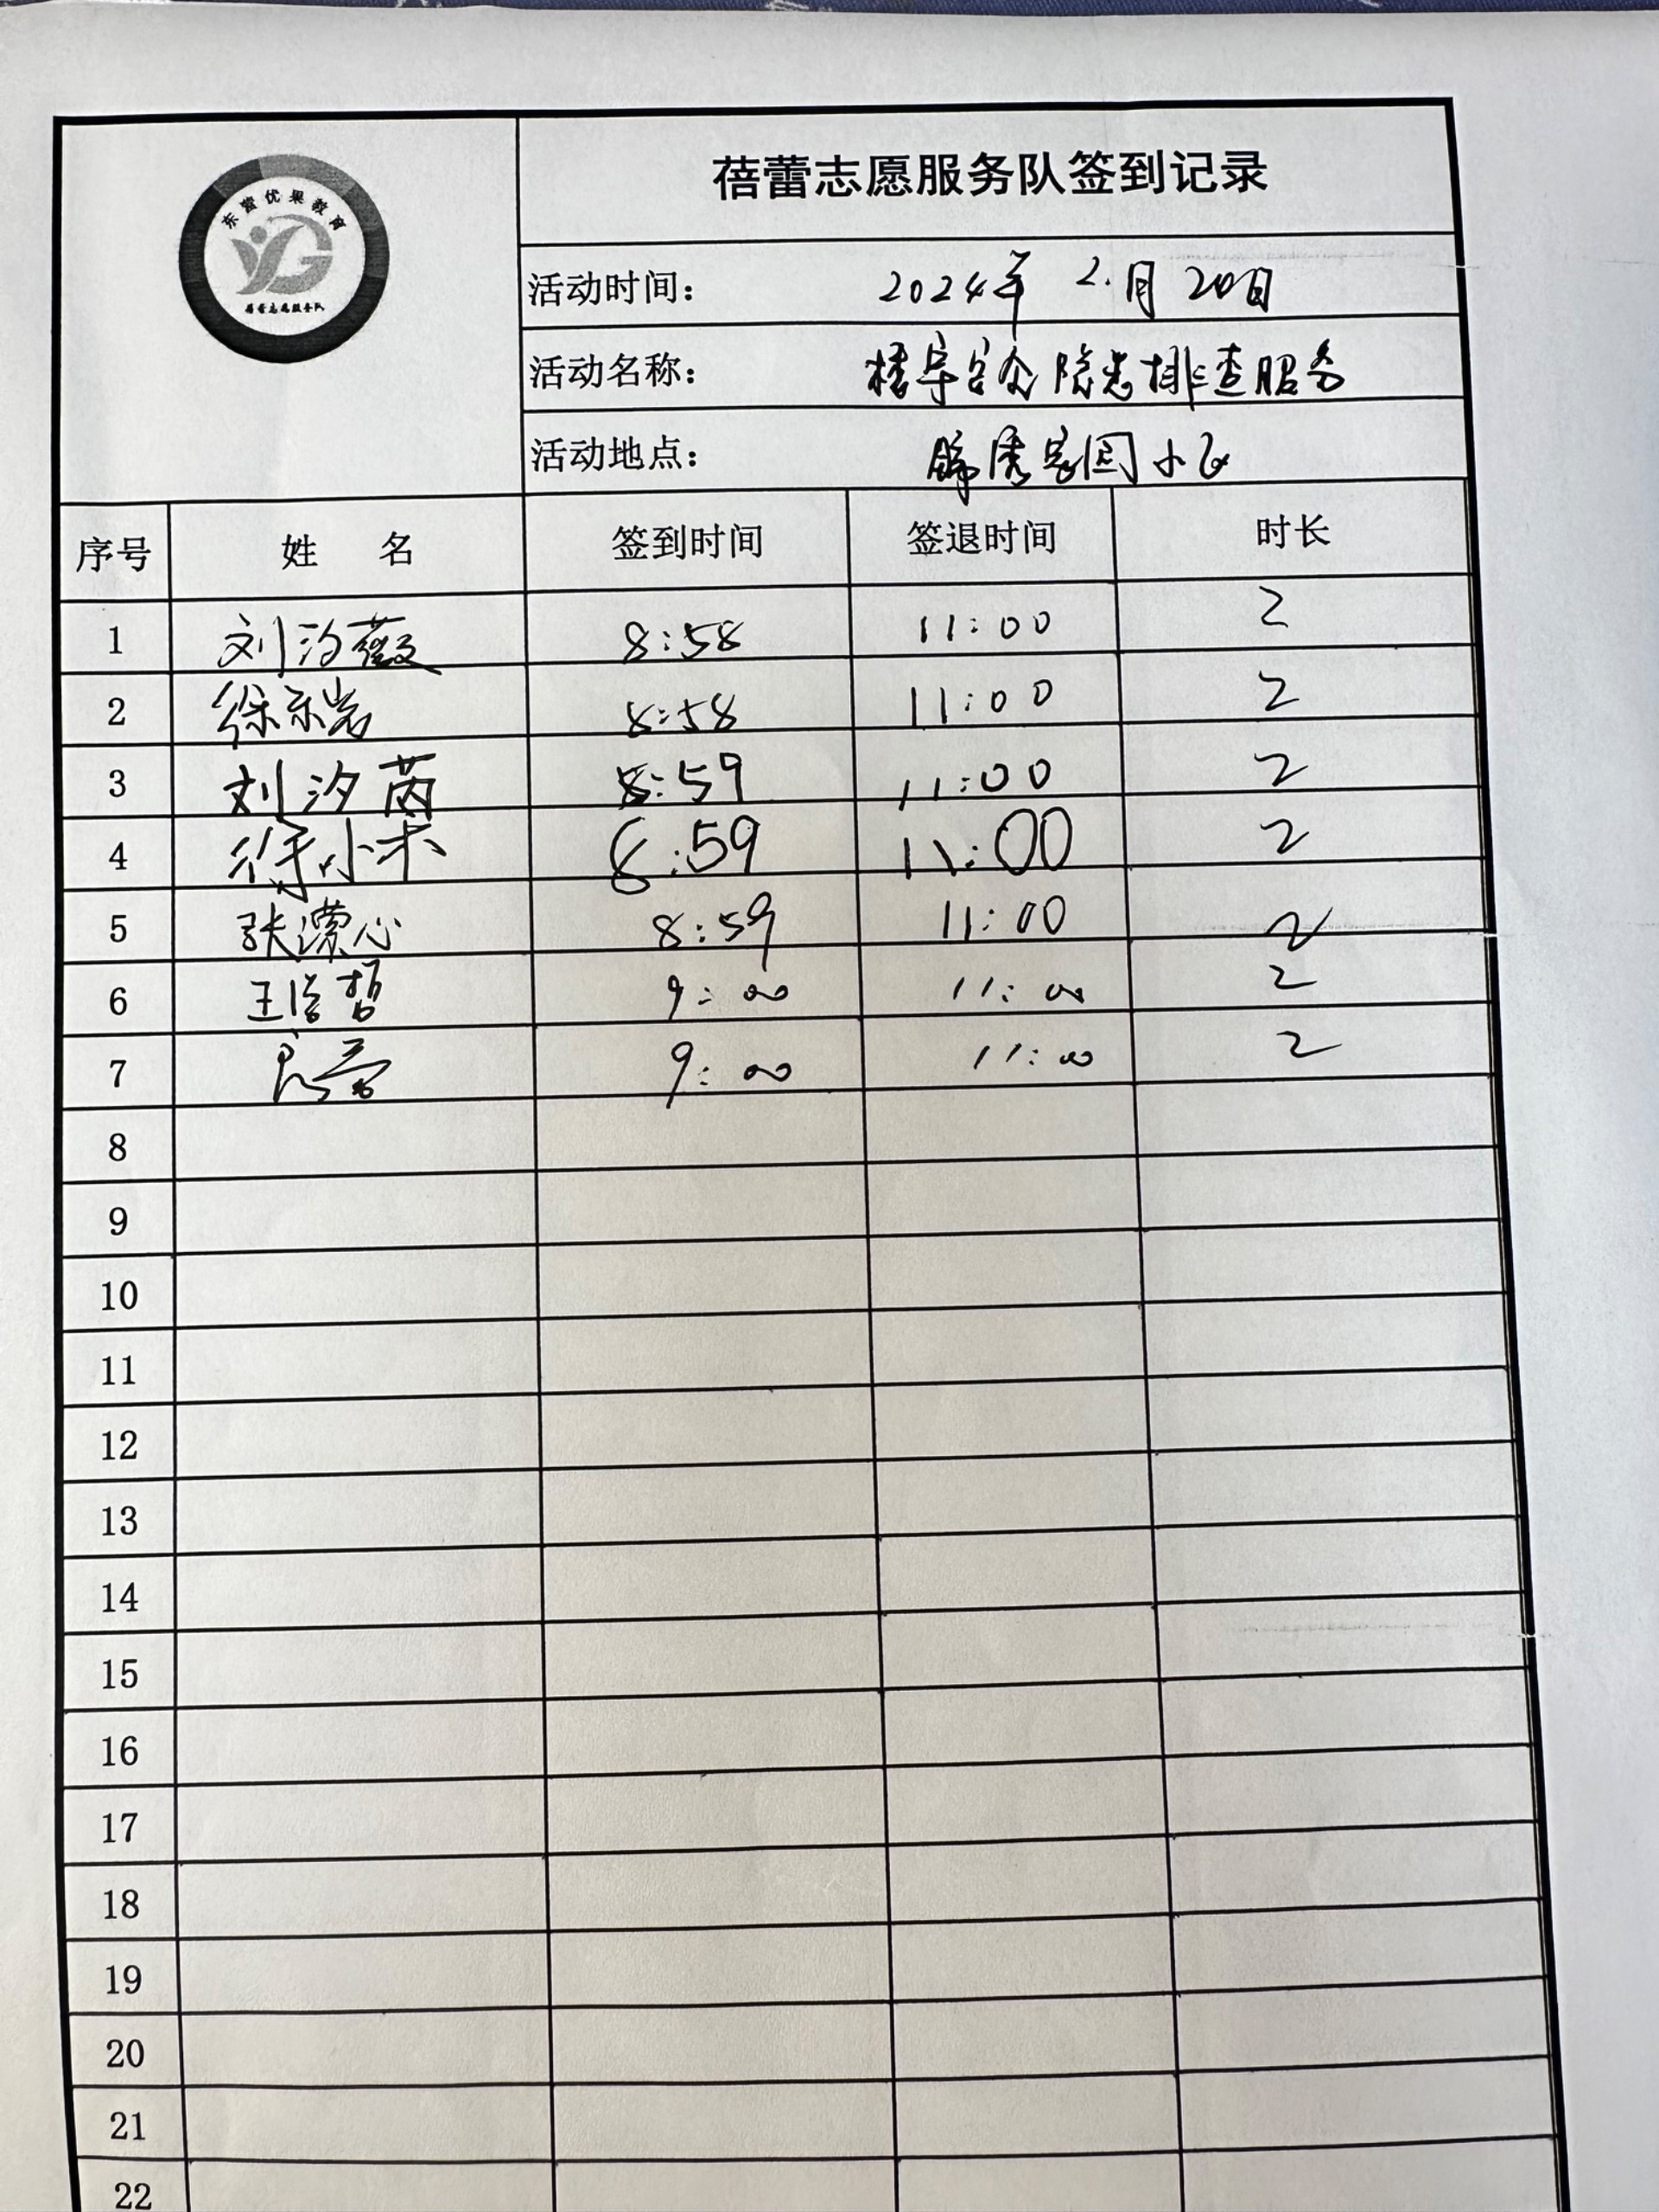 东营优果教育
蓓蕾志愿服务队
蓓蕾志愿服务队签到记录
活动时间： 2024年 2.月 20日
活动名称： 楼宇安全隐患排查服务
活动地点： 锦绣家园小区
序号 姓 名 签到时间 签退时间 时长
1 刘汐薇 8:58 11:00 2
2 8:58 11:00 2
3 刘汐茵 8:59 11:00 2
4 徐小未 8:59 11:00 2
5 张潆心 8:59 11:00 2
6 王浩哲 9:00 11:00 2
7 9:00 11:00 2
8
9
10
11
12
13
14
15
16
17
18
19
20
21
22